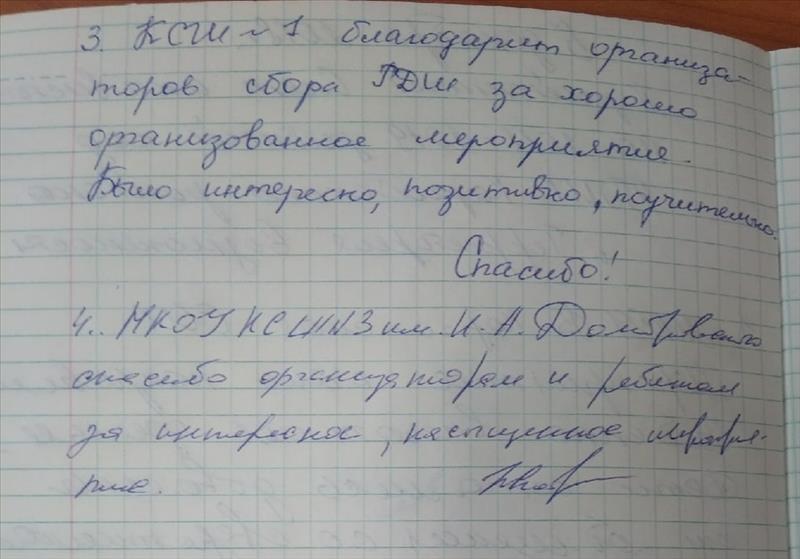 3. КСШ №1 благодарит организа-
торов сбора РДШ за хорошо
организованное мероприятие.
Было интересно, позитивно, поучительно.
Спасибо!
4. МКОУ КСШ №3 им. И.А. Домбровского
спасибо организаторам и ребятам
за интересное, насыщенное мероприя-
тие.